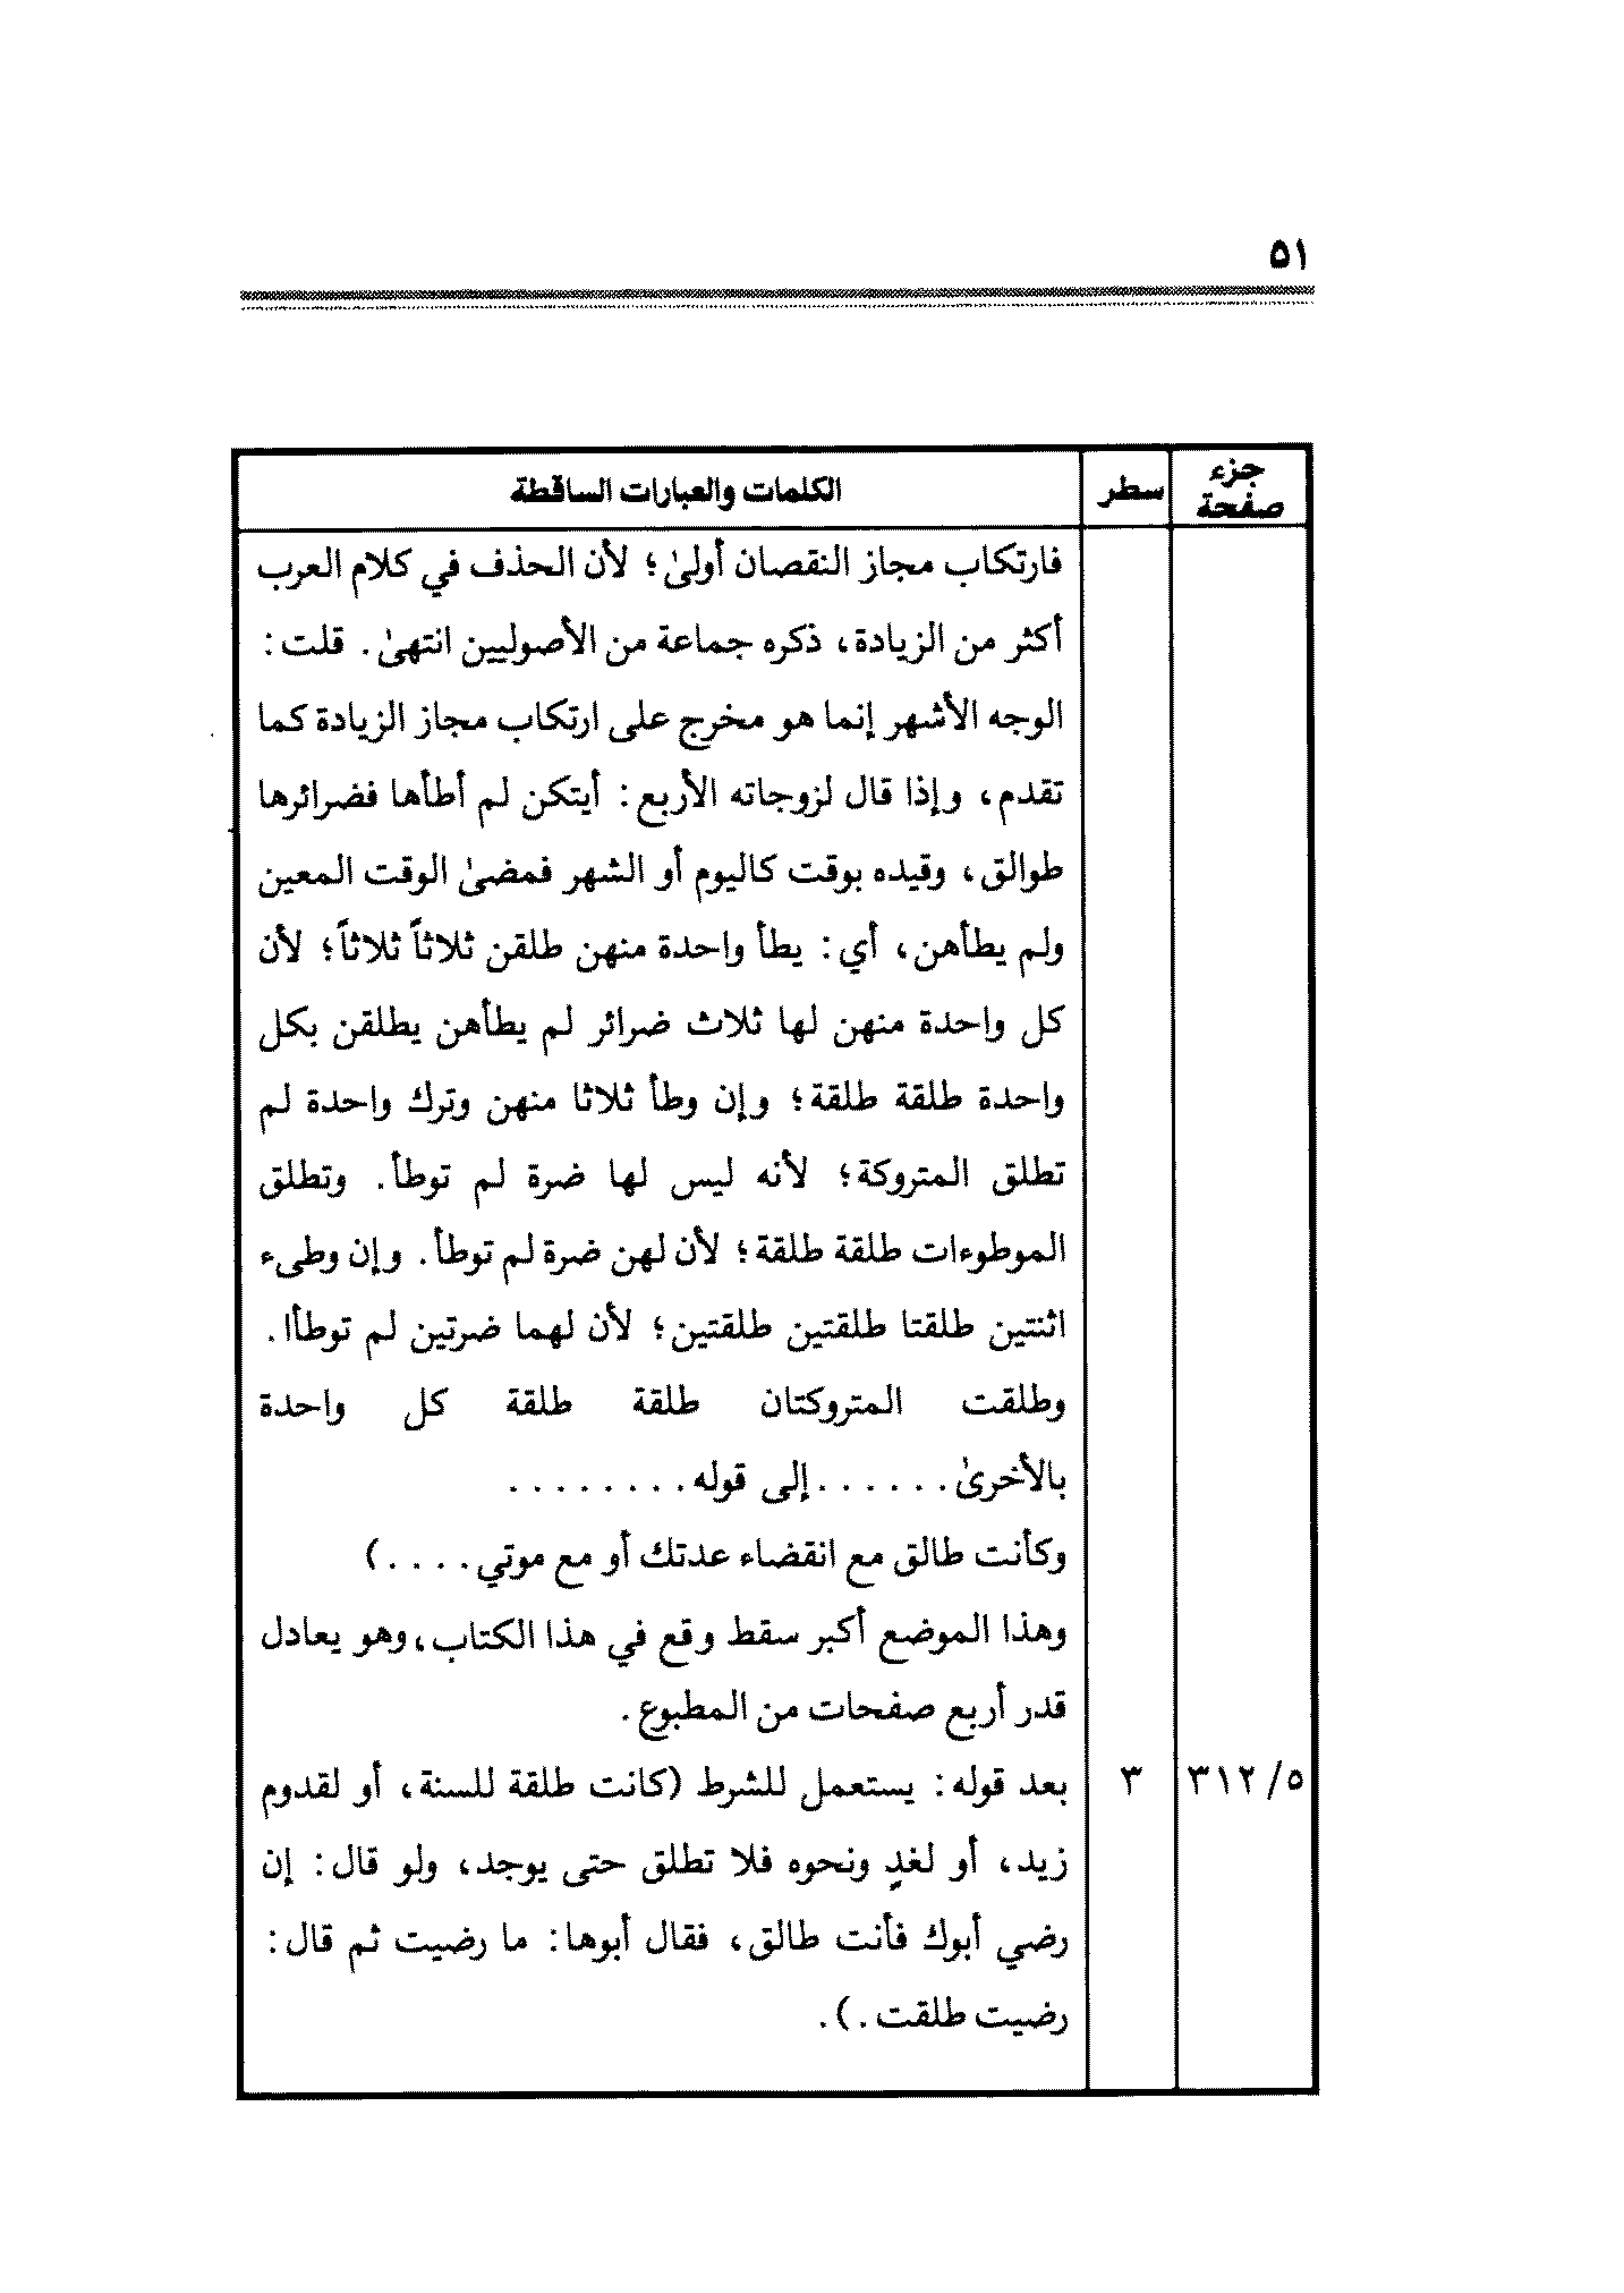 ٥١
جزء
صفحة
سطر
الكلمات والعبارات الساقطة
فارتكاب مجاز النقصان أولىٰ؛ لأن الحذف في كلام العرب
أكثر من الزيادة، ذكره جماعة من الأصوليين انتهىٰ. قلت:
الوجه الأشهر إنما هو مخرج على ارتكاب مجاز الزيادة كما
تقدم، وإذا قال لزوجاته الأربع: أيتكن لم أطأها فضرائرها
طوالق، وقيده بوقت كاليوم أو الشهر فمضىٰ الوقت المعين
ولم يطأهن، أي: يطأ واحدة منهن طلقن ثلاثاً ثلاثاً؛ لأن
كل واحدة منهن لها ثلاث ضرائر لم يطأهن يطلقن بكل
واحدة طلقة طلقة؛ وإن وطأ ثلاثا منهن وترك واحدة لم
تطلق المتروكة؛ لأنه ليس لها ضرة لم توطأ. وتطلق
الموطوءات طلقة طلقة؛ لأن لهن ضرة لم توطأ. وإن وطىء
اثنتين طلقتا طلقتين طلقتين؛ لأن لهما ضرتين لم توطأا.
وطلقت المتروكتان طلقة طلقة كل واحدة
بالأخرىٰ......إلى قوله........
وكأنت طالق مع انقضاء عدتك أو مع موتي....)
وهذا الموضع أكبر سقط وقع في هذا الكتاب، وهو يعادل
قدر أربع صفحات من المطبوع.
٣١٢/٥ ٣ بعد قوله: يستعمل للشرط (كانت طلقة للسنة، أو لقدوم
زيد، أو لغدٍ ونحوه فلا تطلق حتى يوجد، ولو قال: إن
رضي أبوك فأنت طالق، فقال أبوها: ما رضيت ثم قال:
رضيت طلقت.).